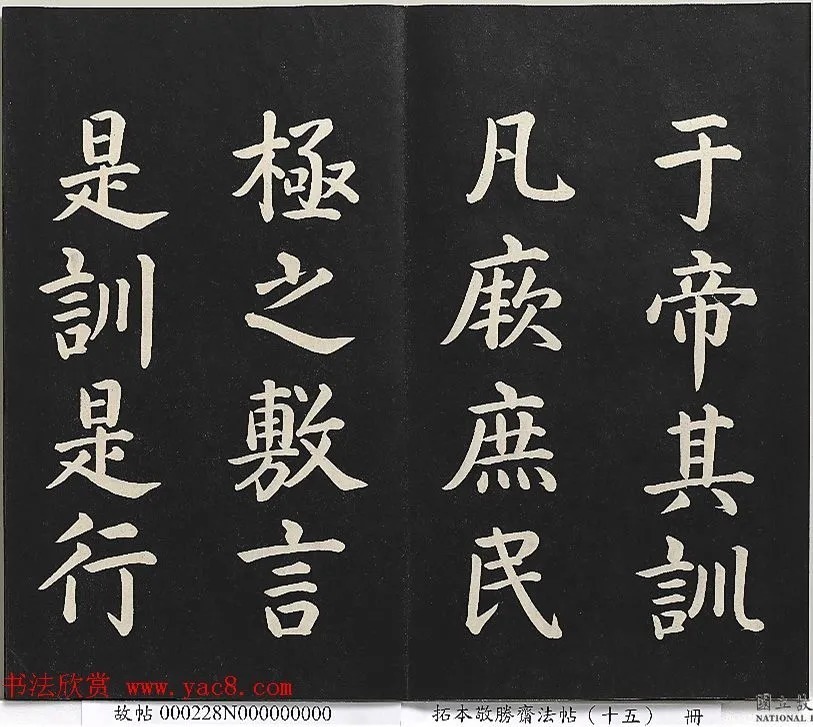 于帝其訓
凡厥庶民
極之敷言
是訓是行
书法欣赏 www.yac8.com
故帖 000228N000000000
拓本敬勝齋法帖（十五） 冊
國立故
NATIONAL